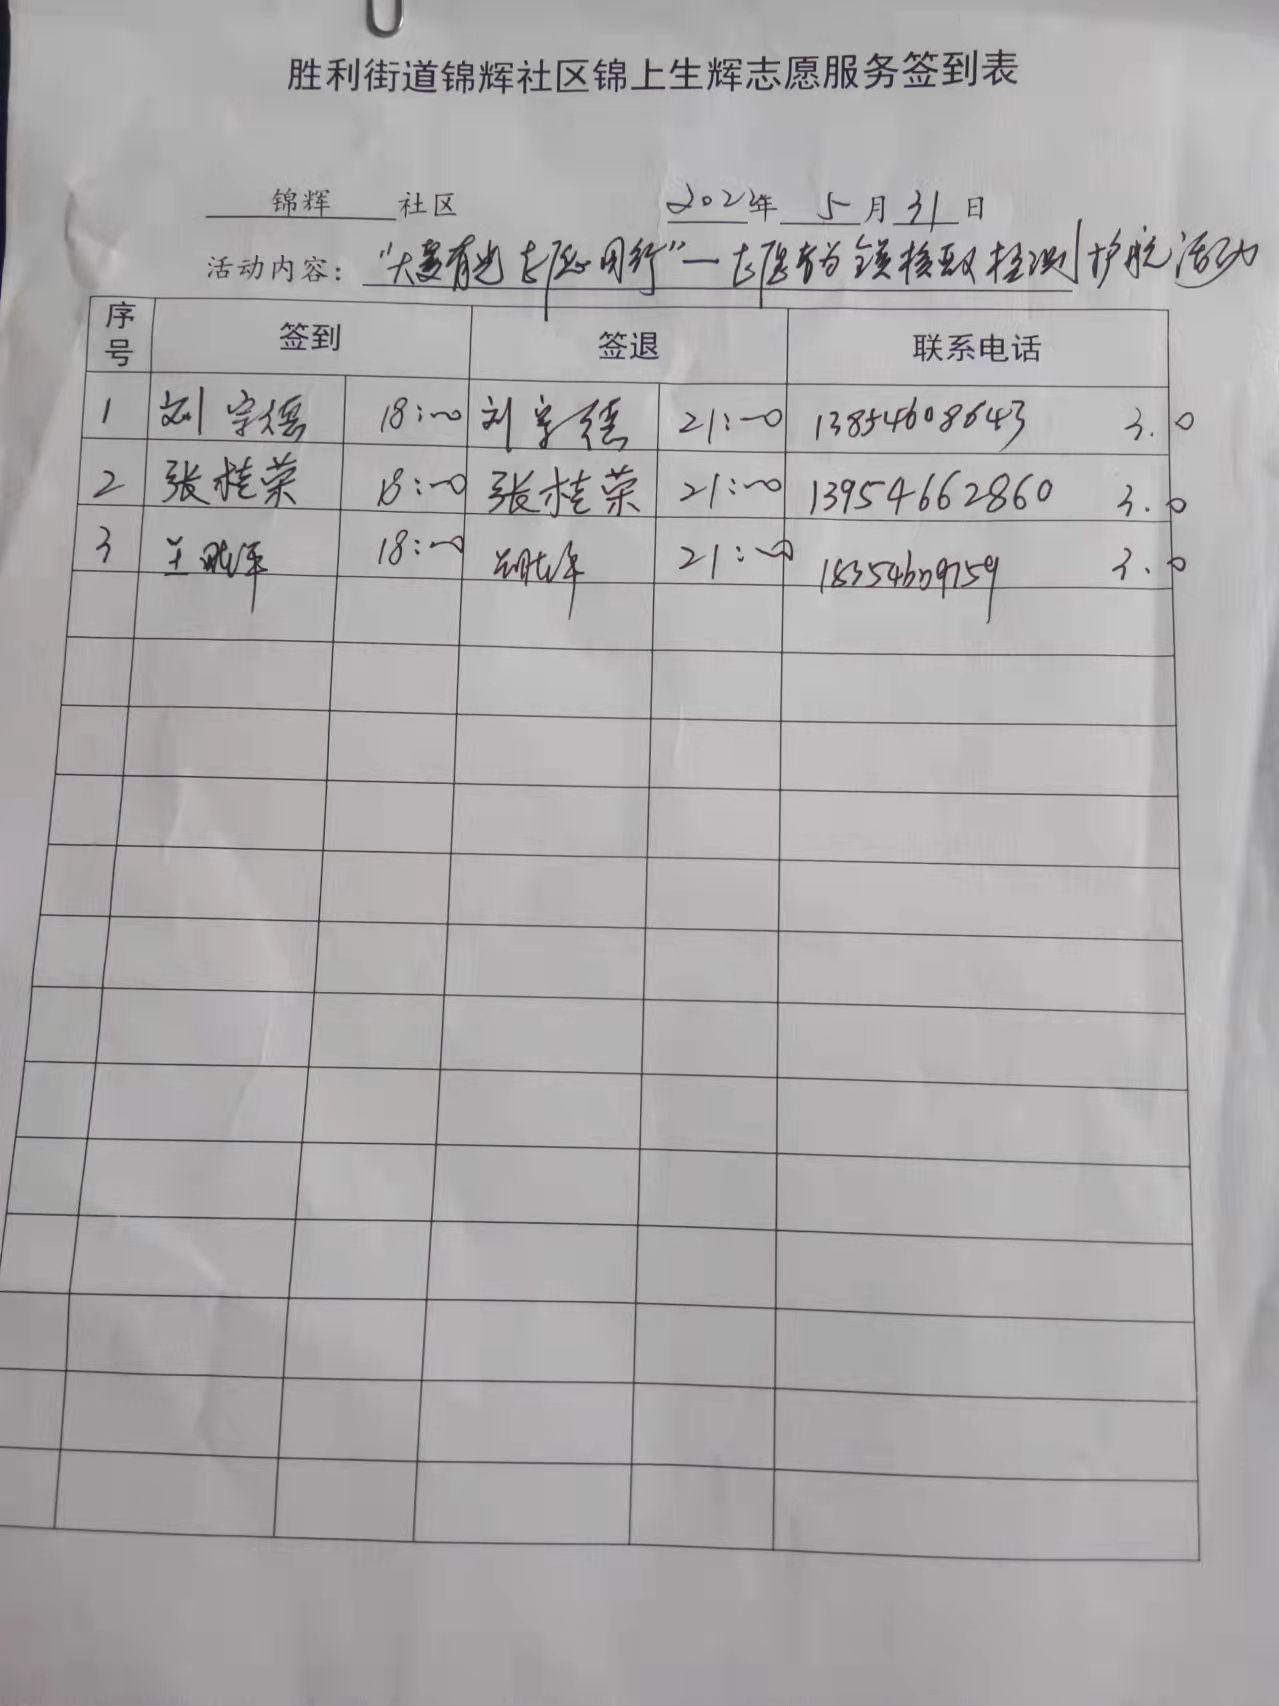 胜利街道锦辉社区锦上生辉志愿服务签到表
锦辉 社区 2022年 5月31日
活动内容：“大爱有光 志愿同行”一志愿者为 核酸检测护航活动
序号 签到 签退 联系电话
1 刘宗德 18:00 刘宗德 21:00 13854608643 3.0
2 张桂荣 18:00 张桂荣 21:00 13954662860 3.0
3 王 18:00 21:00 3.0